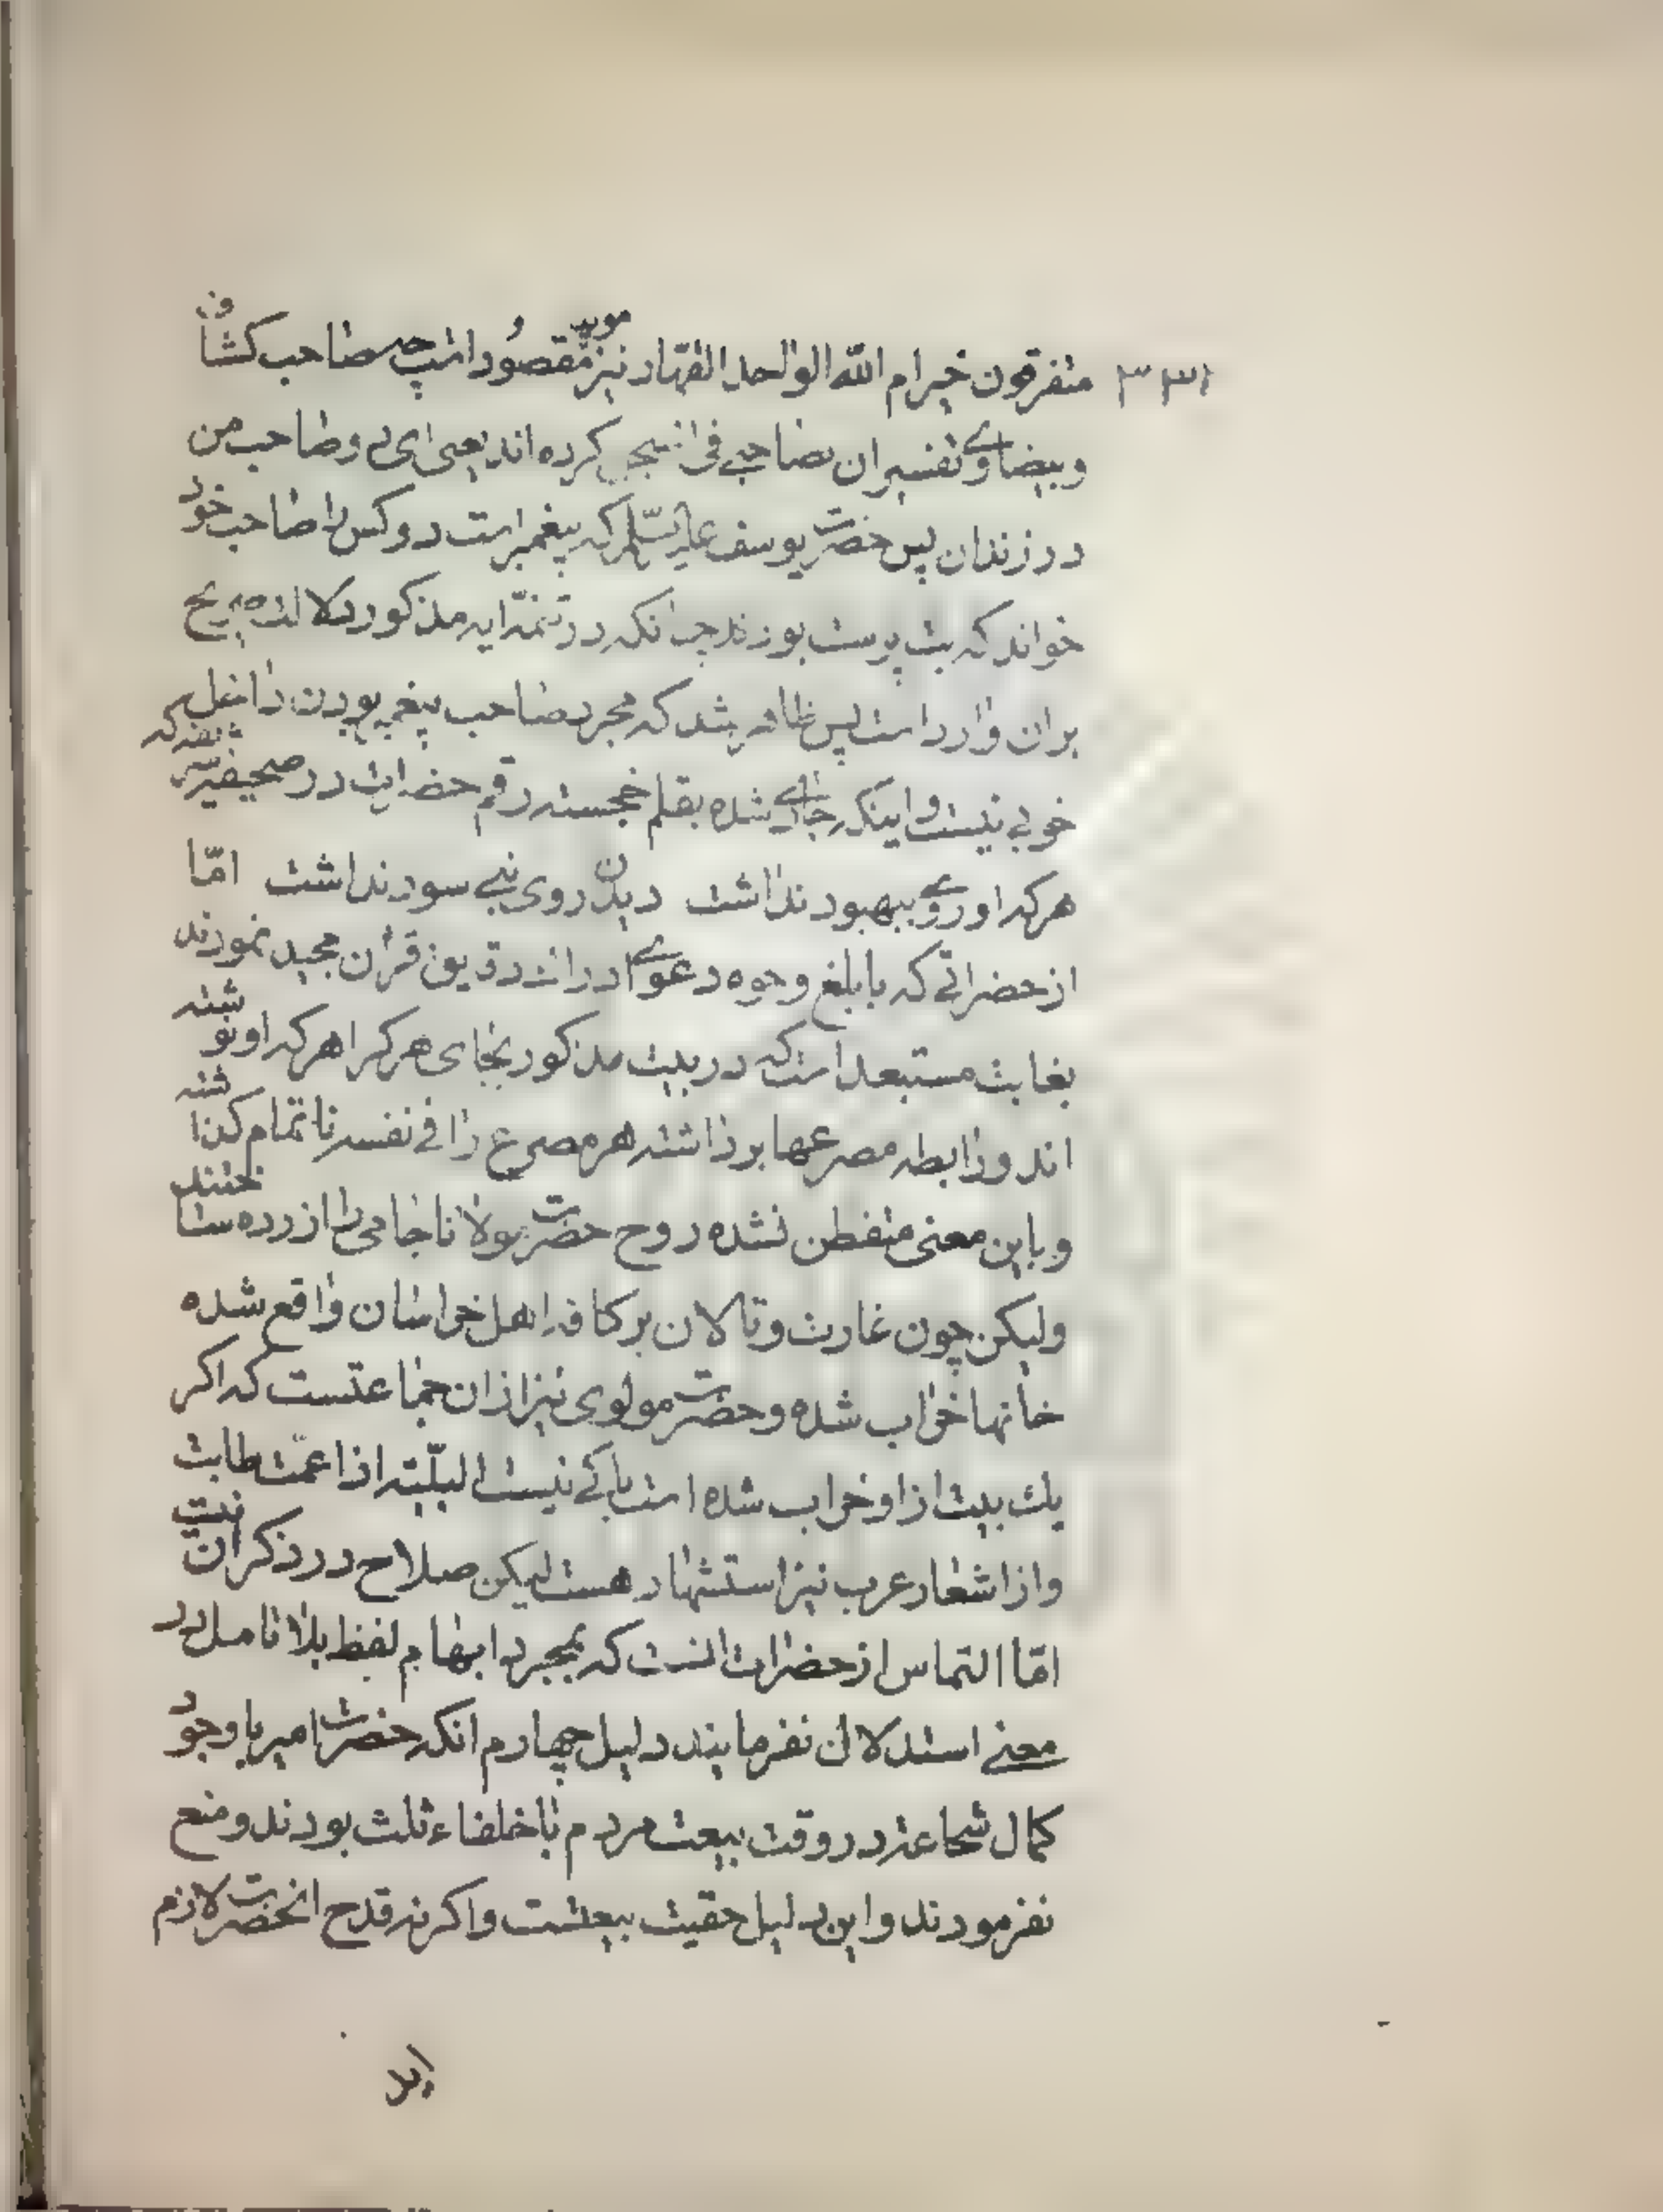 ۳۳۱
متفرقون خیرام الله الواحد القهار نیز موید مقصود است چه صاحب کشاف
و بیضاوے تفسیر ان بصاحبے فی السجن کرده اند یعنی ای دو صاحب من
در زندان پس حضرت یوسف علیه السلم که پیغمبر است دو کس را صاحب خود
خواند که بت پرست بودند چنانکه در تتمه ایه مذکور دلالت صریح
بران وارد است پس ظاهر شد که مجرد صاحب پیغمبر بودن دلیل
خوبی نیست و اینکه جاری شده بقلم خجسته رقم حضرات در صحیفه شریفه که
هرکه او روے ببهبود نداشت دیدن روی نبے سود نداشت امّا
از حضراتی که بابلغ وجوه دعوے ادراک دقایق قران مجید نمودند
بغایت مستبعد است که در بیت مذکور بجای هرکرا هرکه او نوشته
اند و رابطه مصرعها برداشته هر مصرع را فی نفسه ناتمام گذاشته
و باین معنی متفطن نشده روح حضرت مولانا جامی را ازرده ساختند
ولیکن چون غارت و تالان بر کافه اهل خراسان واقع شده
خانها خراب شده و حضرت مولوی نیز ازان جماعتست که اکر
یك بیت از او خراب شده است باکے نیست البلّیته اذا عمّت طابت
و از اشعار عرب نیز استشهاد هست لیکن صلاح در ذکر ان نیست
امّا التماس از حضرات انست که بمجرد ابهام لفظ بلا تامل در
معنے استدلال نفرمایند دلیل چهارم انکه حضرت امیر با وجود
کمال شجاعت در وقت بیعت مردم با خلفاء ثلث بودند و منع
نفرمودند و این دلیل حقیت بیعتست و اکر نه قدح انحضرت لازم
اید